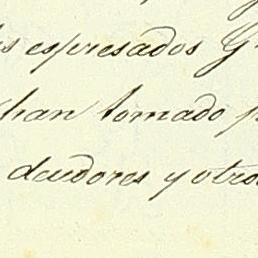 espresados
han tomado
deudores y otros